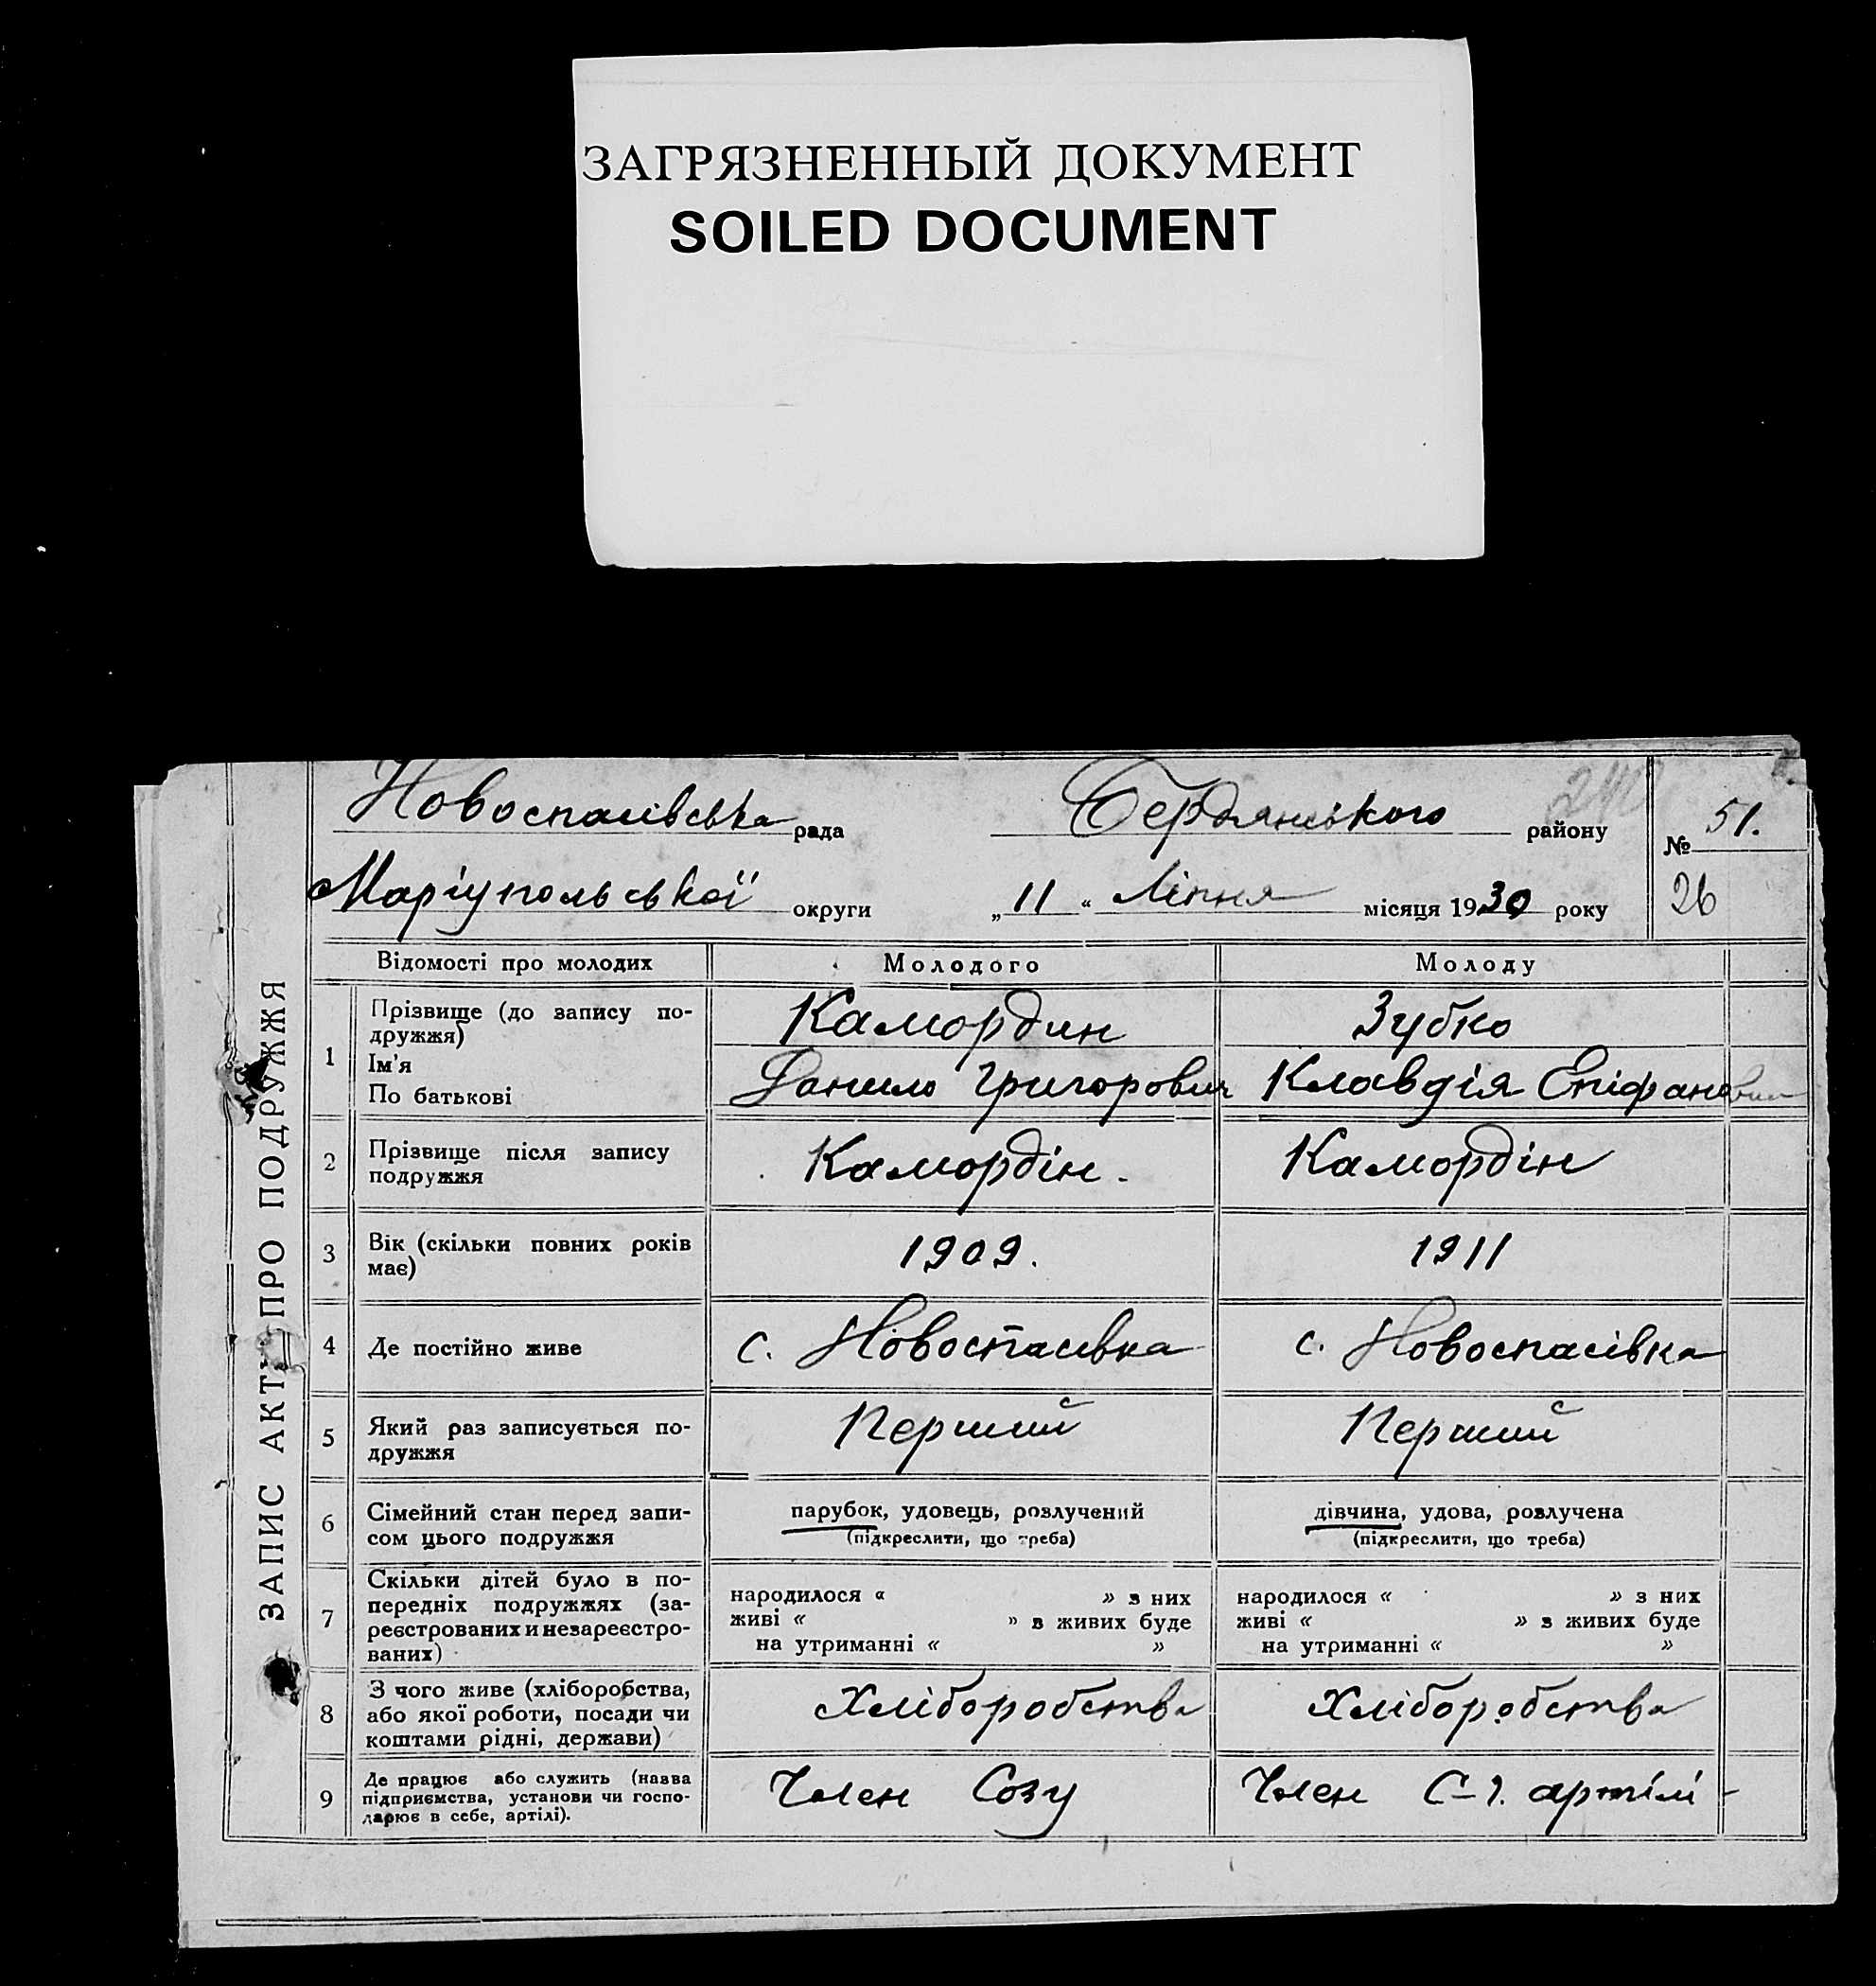 ЗАГРЯЗНЕННЫЙ ДОКУМЕНТ
SOILED DOCUMENT
Новоспасівська рада Бердянського району № 51.
Маріупольської округи „11“ Ліпня місяця 1930 року 26
ЗАПИС АКТУ ПРО ПОДРУЖЖЯ
Відомості про молодих Молодого Молоду
1 Прізвище (до запису по-
дружжя)
Камордин Зубко
Ім'я
По батькові
Данило Григорович Клавдія Епіфановна
2 Прізвище після запису
подружжя
Камордін. Камордін
3 Вік (скільки повних років
має)
1909. 1911
4 Де постійно живе с. Новоспасівка с. Новоспасівка
5 Який раз записується по-
дружжя
Перший Перший
6 Сімейний стан перед запи-
сом цього подружжя
парубок, удовець, розлучений дівчина, удова, розлучена
(підкреслити, що треба) (підкреслити, що треба)
7 Скільки дітей було в по-
передніх подружжях (за-
реєстрованих и незареєстро-
ваних)
народилося « » з них народилося « » з них
живі « » в живих буде живі « » з живих буде
на утриманні « » на утриманні « »
8 З чого живе (хліборобства,
або якої роботи, посади чи
коштами рідні, держави)
Хліборобства Хліборобства
9 Де працює або служить (назва
підприємства, установи чи госпо-
дарює в себе, артілі).
Член Созу Член С-г. артілі